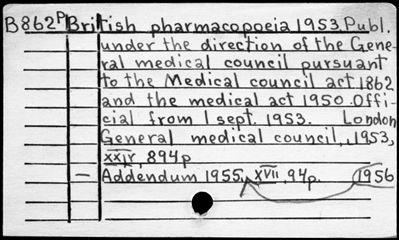 B862P British pharmacopoeia 1953. Publ.
under the direction of the Gene-
ral medical council pursuant
to the Medical council act 1862
and the medical act 1950. Offi-
cial from 1 sept. 1953. London
General medical council, 1953,
xxiv, 894p
— Addendum 1955, xvii, 94p. 1956